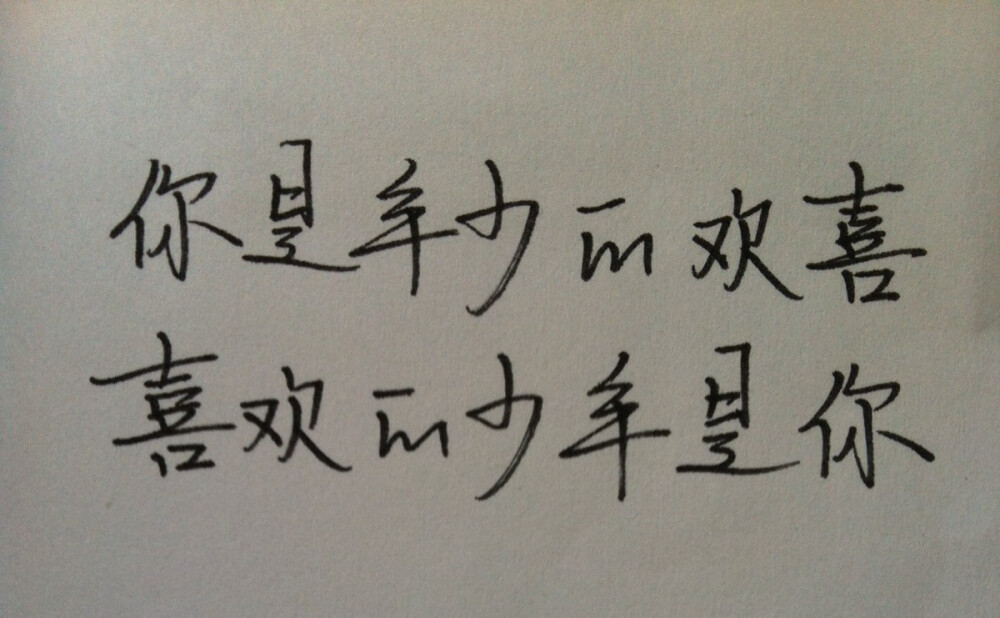 你是年少的欢喜
喜欢的少年是你